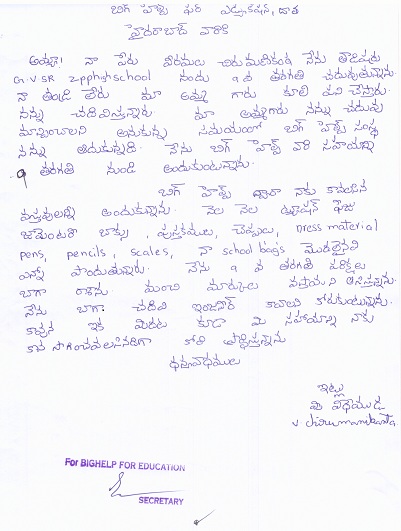 బిగ్ హెల్ప్ ఫర్ ఎడ్యుకేషన్, దాత
హైదరాబాద్ వారికి
అయ్యా! నా పేరు వీరమల చిరుమణికంఠ నేను తాడిపర్రు
G.V.SR zpphighschool నందు 9 వ తరగతి చదువుతున్నాను.
నా తండ్రి లేరు మా అమ్మ గారు కూలి పని చేస్తారు.
నన్ను చదివిస్తున్నారు. మా అమ్మగారు నన్ను చదువు
మాన్పించాలని అనుకున్న సమయంలో బిగ్ హెల్ప్ సంస్థ
నన్ను ఆదుకున్నది. నేను బిగ్ హెల్ప్ వారి సహాయాన్ని
9 తరగతి నుండి అందుకుంటున్నాను.
బిగ్ హెల్ప్ ద్వారా నాకు కావలసిన
వస్తువులన్ని అందుకున్నాను. నెల నెల ట్యూషన్ ఫీజు
జామెంటరీ బాక్సు, పుస్తకములు, చెప్పులు, Dress material
pens, pencils, scales, నా school bags మొదలైనవి
ఎన్నో పొందుతున్నాను. నేను 9 వ తరగతి పరీక్షలు
బాగా రాశాను. మంచి మార్కులు వస్తాయని
నేను బాగా చదివి ఇంజనీర్ కావాలని కోరుకుంటున్నాను.
కావున ఇక మీదట కూడా మీ సహాయాన్ని నాకు
కోరి ప్రార్థిస్తున్నాను
ధన్యవాదములు
ఇట్లు
మీ విధేయుడు
v chirumanikanta
For BIGHELP FOR EDUCATION
SECRETARY